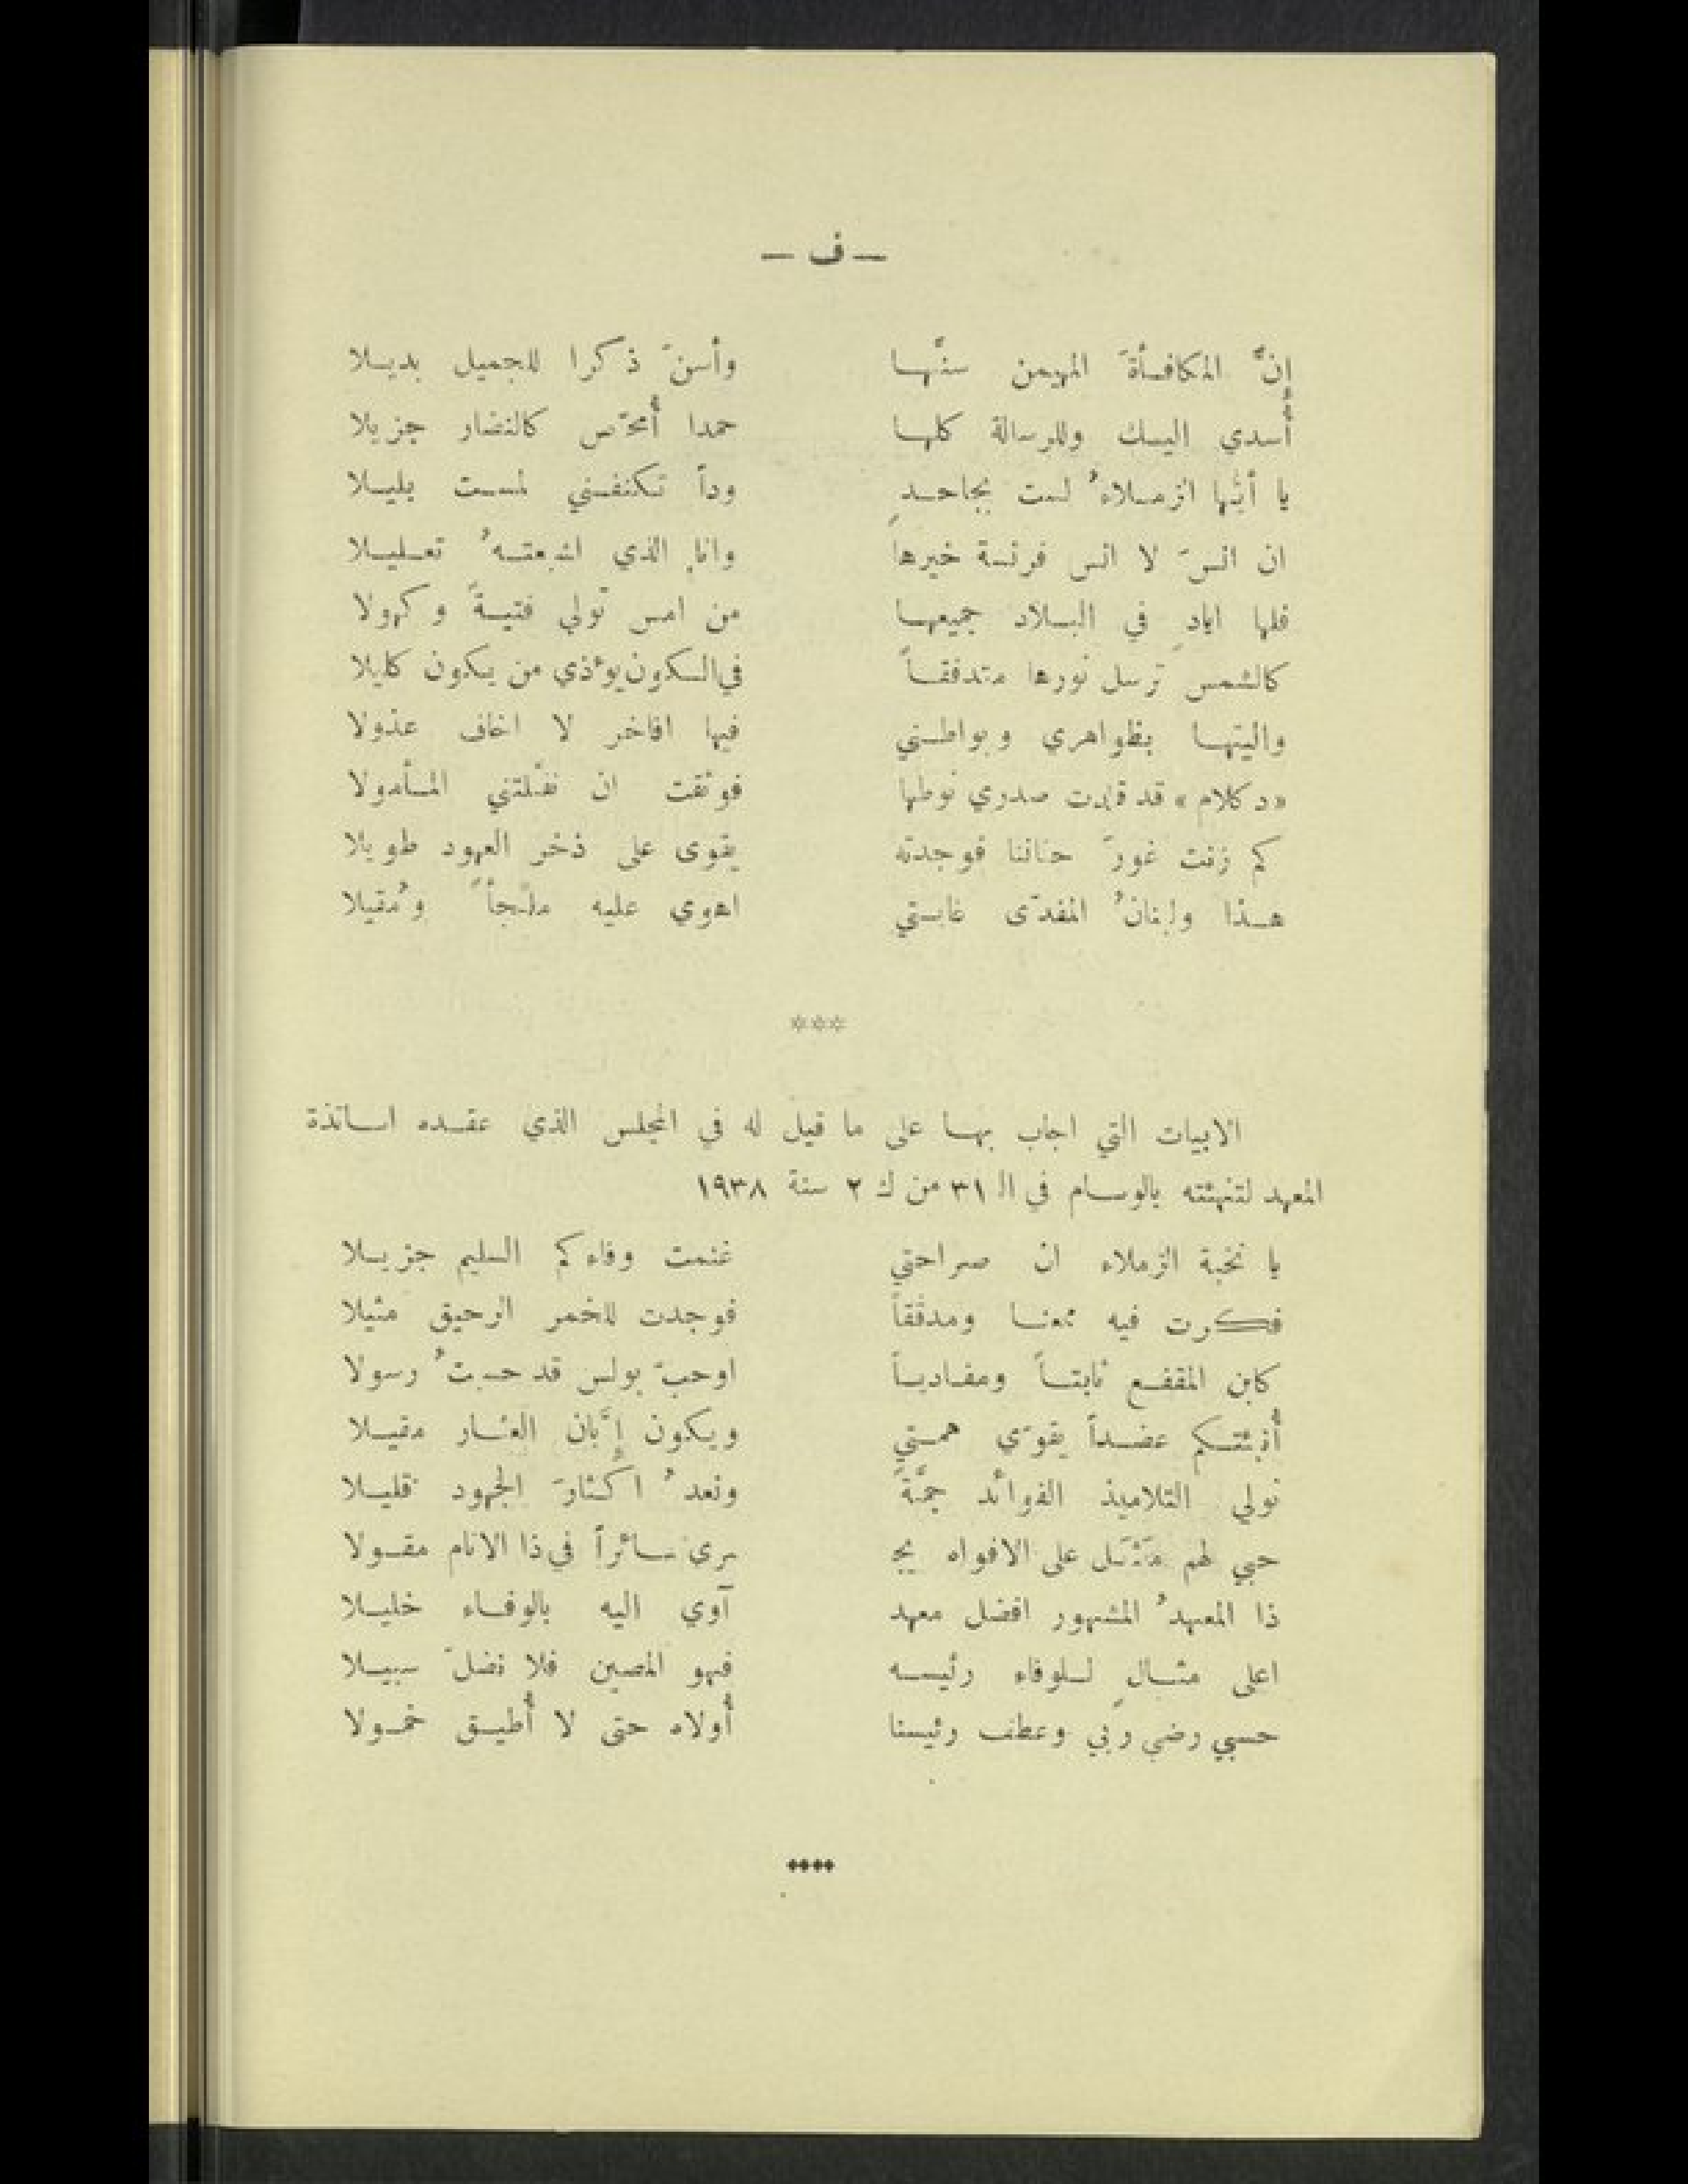 — ف —
إنَّ المكافأةَ المهيمن سنَّها وأسنّ ذكرا للجميل بديلا
أُسدي اليك وللرسالة كلها حمدا أُمحّص كالنضار جزيلا
يا أيُّها الزملاءُ لست بجاحدٍ وداً تكنفني لمست بليلا
ان انسَ لا انس فرنسة خيرها وانا الذي اشبعتهُ تعليلا
فلها ايادٍ في البلاد جميعها من امس تولي فتيةً وكهولا
كالشمس ترسل نورها متدفقاً في الكون يؤذي من يكون كليلا
واليتها بظواهري وبواطني فيها افاخر لا اخاف عذولا
«دكلام» قد قلدت صدري نوطها فوثقت ان نفّلتني المأمولا
كم زنت غورَ حناننا فوجدته يقوى على ذخر العهود طويلا
هذا ولبنانُ المفدّى غايتي اهوي عليه ملجأً ومُقيلا
***
الابيات التي اجاب بها على ما قيل له في المجلس الذي عقده اساتذة
المعهد لتهنئته بالوسام في الـ ٣١ من ك ٢ سنة ١٩٣٨
يا نخبة الزملاء ان صراحتي غنمت وفاءكم السليم جزيلا
فكرت فيه ممعنا ومدققاً فوجدت للخمر الرحيق مثيلا
كابن المقفع ثابتاً ومفادياً اوحبّ بولس قد حسبتُ رسولا
أُنبئتكم عضداً يقوّي همتي ويكون إبَّان العثار مقيلا
نولي التلاميذ الفوائد جمَّةً ونعدُ اكثارَ الجهود قليلا
حبي لهم مَثَل على الافواه يجـ ـري سائراً في ذا الانام مقولا
ذا المعهدُ المشهور افضل معهد آوي اليه بالوفاء خليلا
اعلى مثالٍ للوفاء رئيسه فهو المصين فلا نضلّ سبيلا
حسبي رضى ربي وعطف رئيسنا أُولاه حتى لا أُطيق خمولا
****